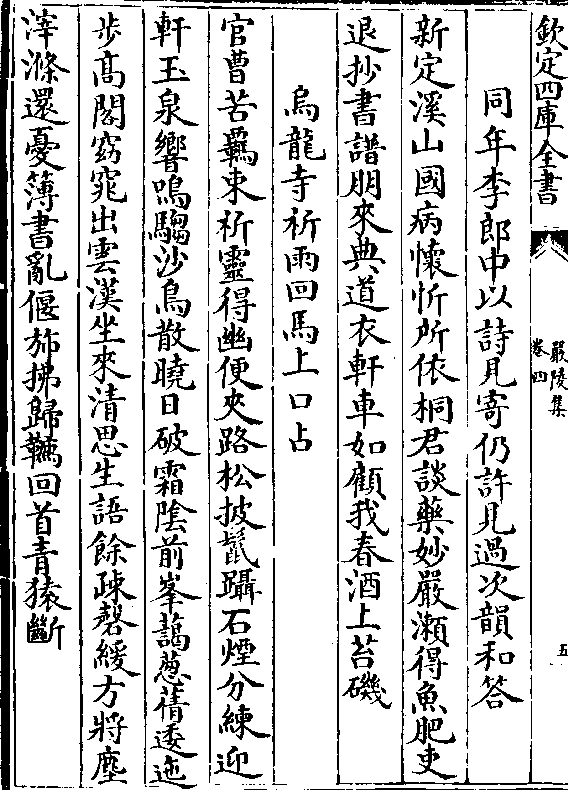 欽定四庫全書
嚴陵集
卷四
五
同年李郎中以詩見寄仍許見過次韻和答
新定溪山國病懷忻所依桐君談藥妙嚴瀬得魚肥吏
退抄書譜朋來典道衣軒車如顧我春酒上苔磯
烏龍寺祈雨回馬上口占
官曹苦羈束祈靈得幽便夾路松披鬣躡石煙分練迎
軒玉泉響鳴騶沙鳥散曉日破霜陰前峯藹葱蒨逶迤
步高閣窈窕出雲漢坐來清思生語餘疎磬緩方將塵
滓滌還憂簿書亂偃斾拂歸韉回首青猿斷